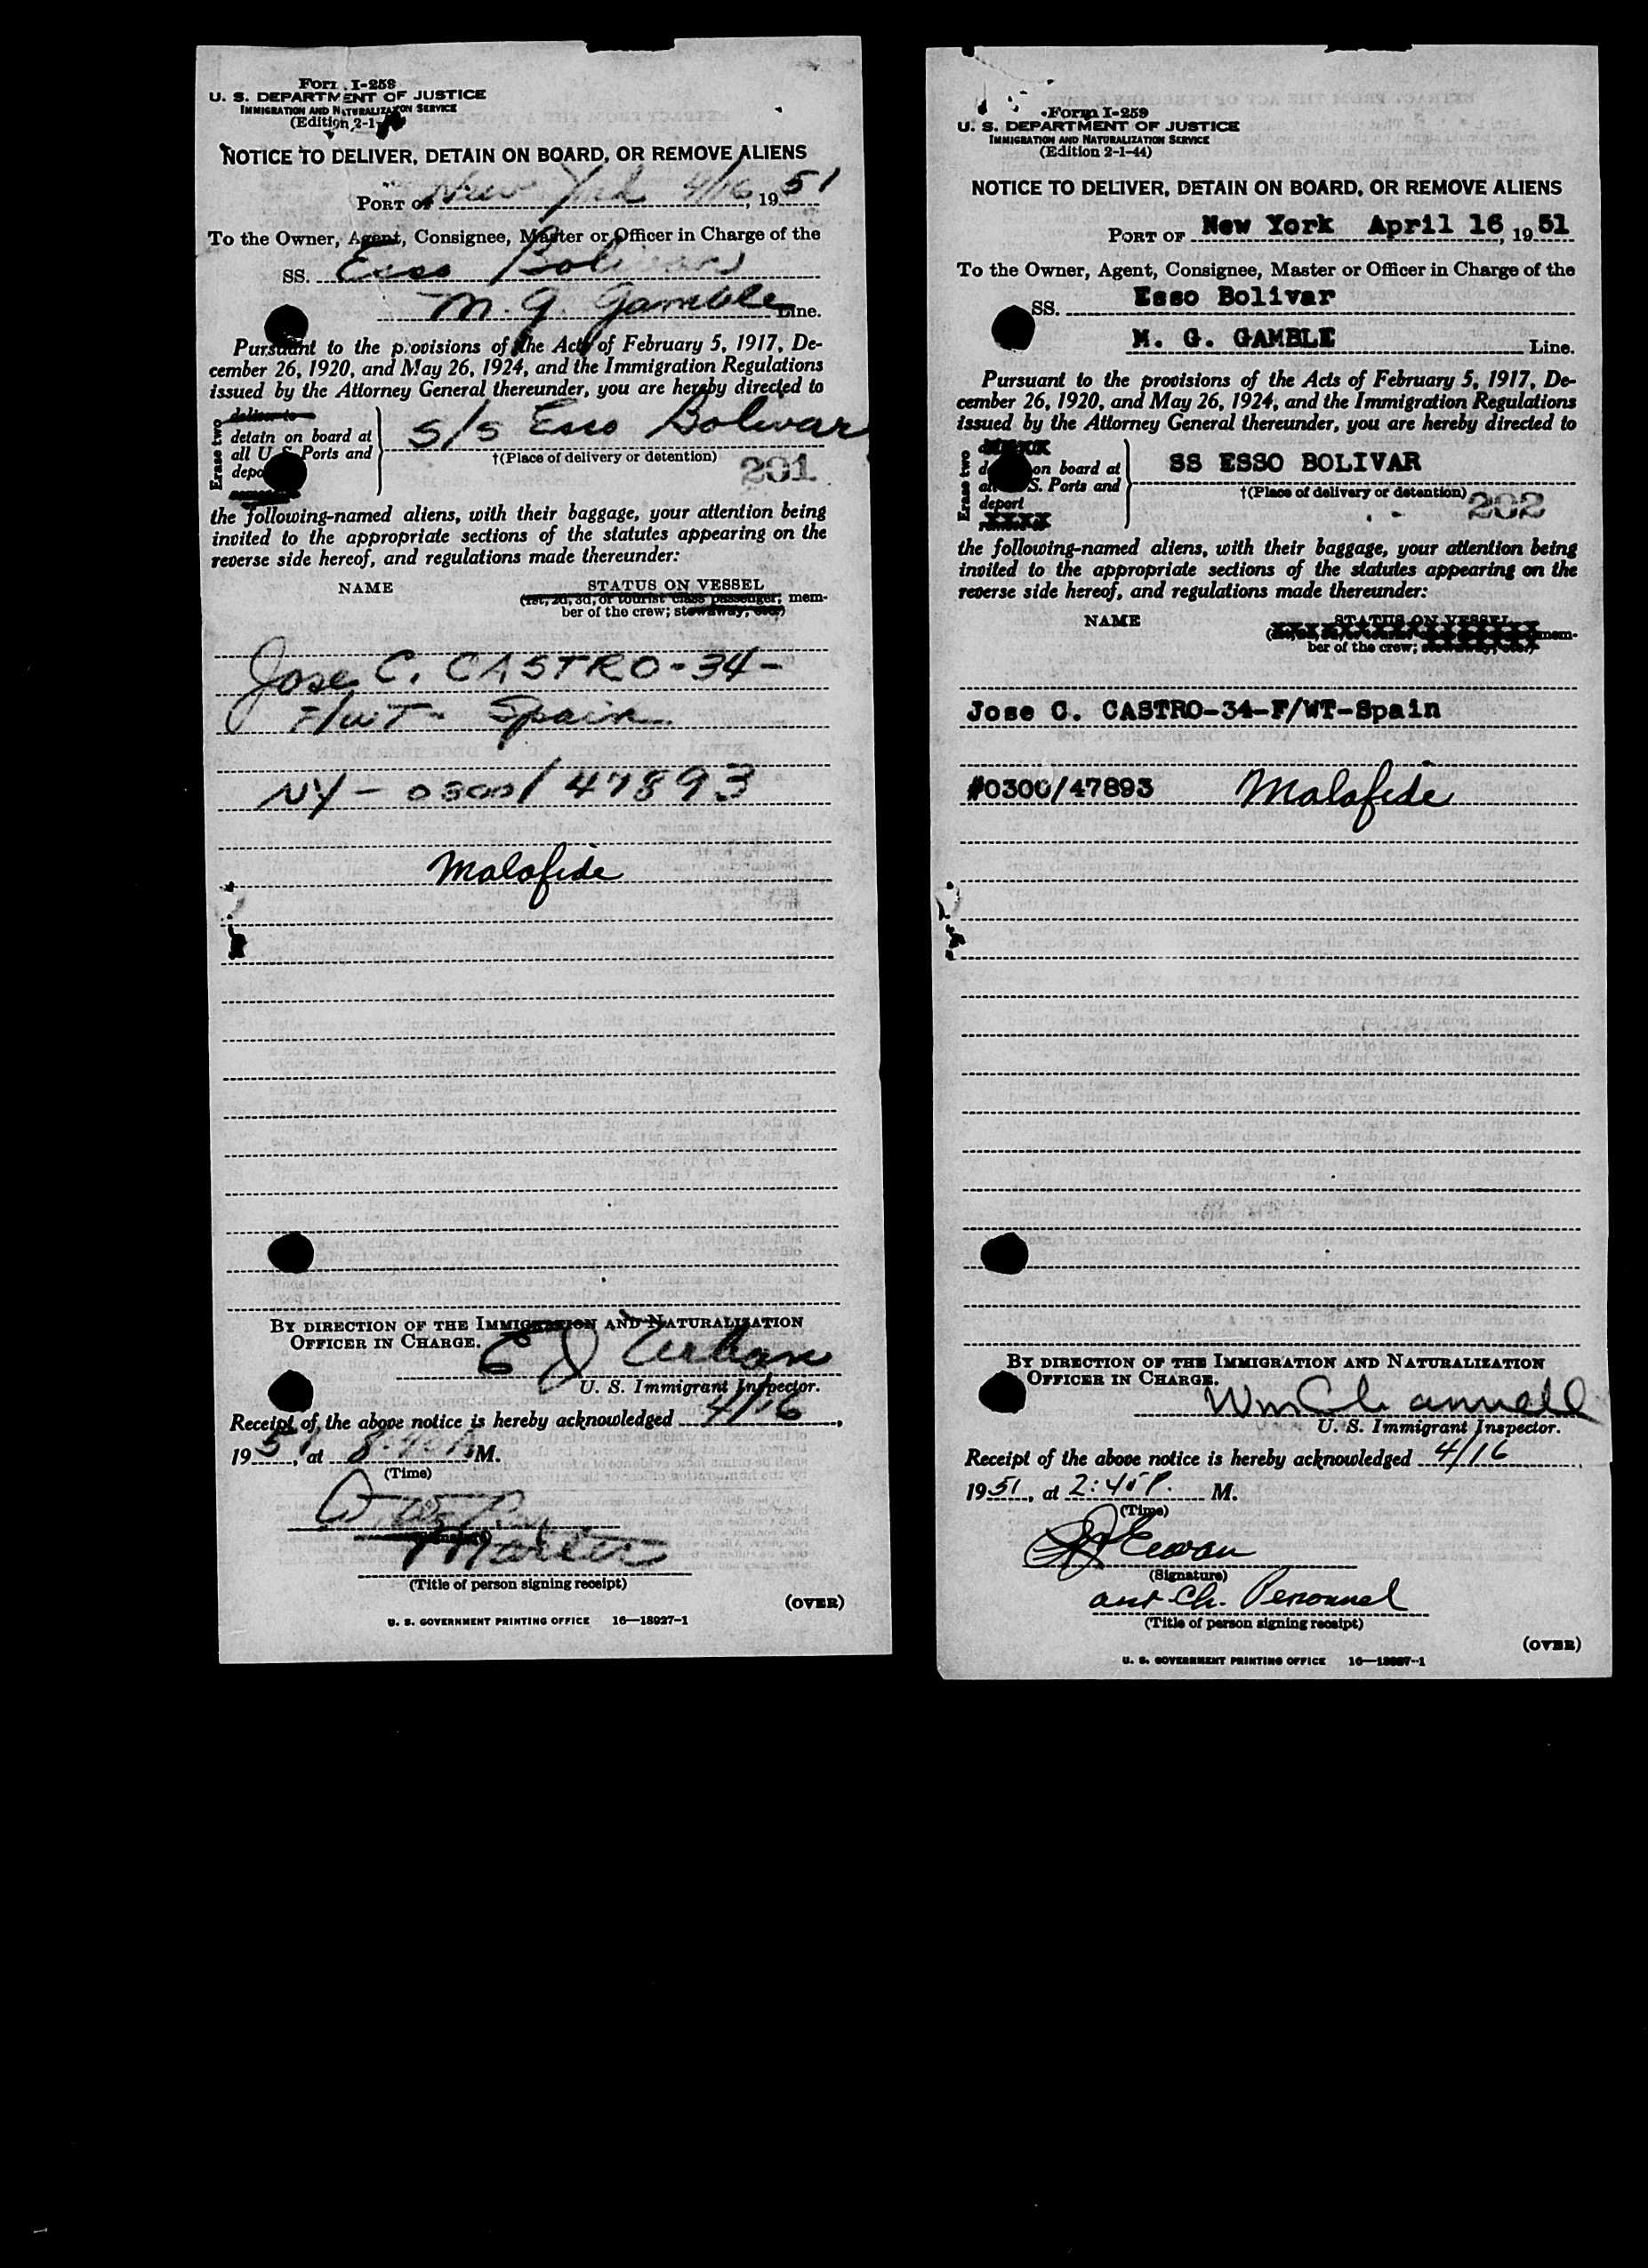 Form I-259
U. S. DEPARTMENT OF JUSTICE
IMMIGRATION AND NATURALIZATION SERVICE
(Edition 2-1-
NOTICE TO DELIVER, DETAIN ON BOARD, OR REMOVE ALIENS
PORT OF New York 4/16, 1951
To the Owner, Agent, Consignee, Master or Officer in Charge of the
SS. Esso Bolivar
M. G. Gamble Line.
Pursuant to the provisions of the Acts of February 5, 1917, De-
cember 26, 1920, and May 26, 1924, and the Immigration Regulations
issued by the Attorney General thereunder, you are hereby directed to
Erase two
deliver to
detain on board at
all U. S. Ports and
S/S Esso Bolivar
†(Place of delivery or detention)
201
the following-named aliens, with their baggage, your attention being
invited to the appropriate sections of the statutes appearing on the
reverse side hereof, and regulations made thereunder:
NAME STATUS ON VESSEL
(1st, 2d, 3d, or tourist class passenger; mem-
ber of the crew; stowaway, etc.)
Jose C. CASTRO-34-
F/WT- Spain
NY- 0300/47893
Malafide
BY DIRECTION OF THE IMMIGRATION AND NATURALIZATION
OFFICER IN CHARGE.
E J Urban
U. S. Immigrant Inspector.
Receipt of the above notice is hereby acknowledged 4/16,
1951, at 8:40 A M.
(Time)
Master
(Title of person signing receipt)
(OVER)
U. S. GOVERNMENT PRINTING OFFICE 16—18927-1
Form I-259
U. S. DEPARTMENT OF JUSTICE
IMMIGRATION AND NATURALIZATION SERVICE
(Edition 2-1-44)
NOTICE TO DELIVER, DETAIN ON BOARD, OR REMOVE ALIENS
PORT OF New York April 16, 1951
To the Owner, Agent, Consignee, Master or Officer in Charge of the
SS. Esso Bolivar
M. G. GAMBLE Line.
Pursuant to the provisions of the Acts of February 5, 1917, De-
cember 26, 1920, and May 26, 1924, and the Immigration Regulations
issued by the Attorney General thereunder, you are hereby directed to
Erase two
on board at
S. Ports and
deport
SS ESSO BOLIVAR
†(Place of delivery or detention)
202
the following-named aliens, with their baggage, your attention being
invited to the appropriate sections of the statutes appearing on the
reverse side hereof, and regulations made thereunder:
NAME STATUS ON VESSEL
mem-
ber of the crew; stowaway, etc.)
Jose C. CASTRO-34-F/WT-Spain
#0300/47893 Malafide
BY DIRECTION OF THE IMMIGRATION AND NATURALIZATION
OFFICER IN CHARGE.
U. S. Immigrant Inspector.
Receipt of the above notice is hereby acknowledged 4/16
1951, at 2:45 P. M.
(Time)
(Signature)
asst Ch. Personnel
(Title of person signing receipt)
(OVER)
U. S. GOVERNMENT PRINTING OFFICE 16—18927-1